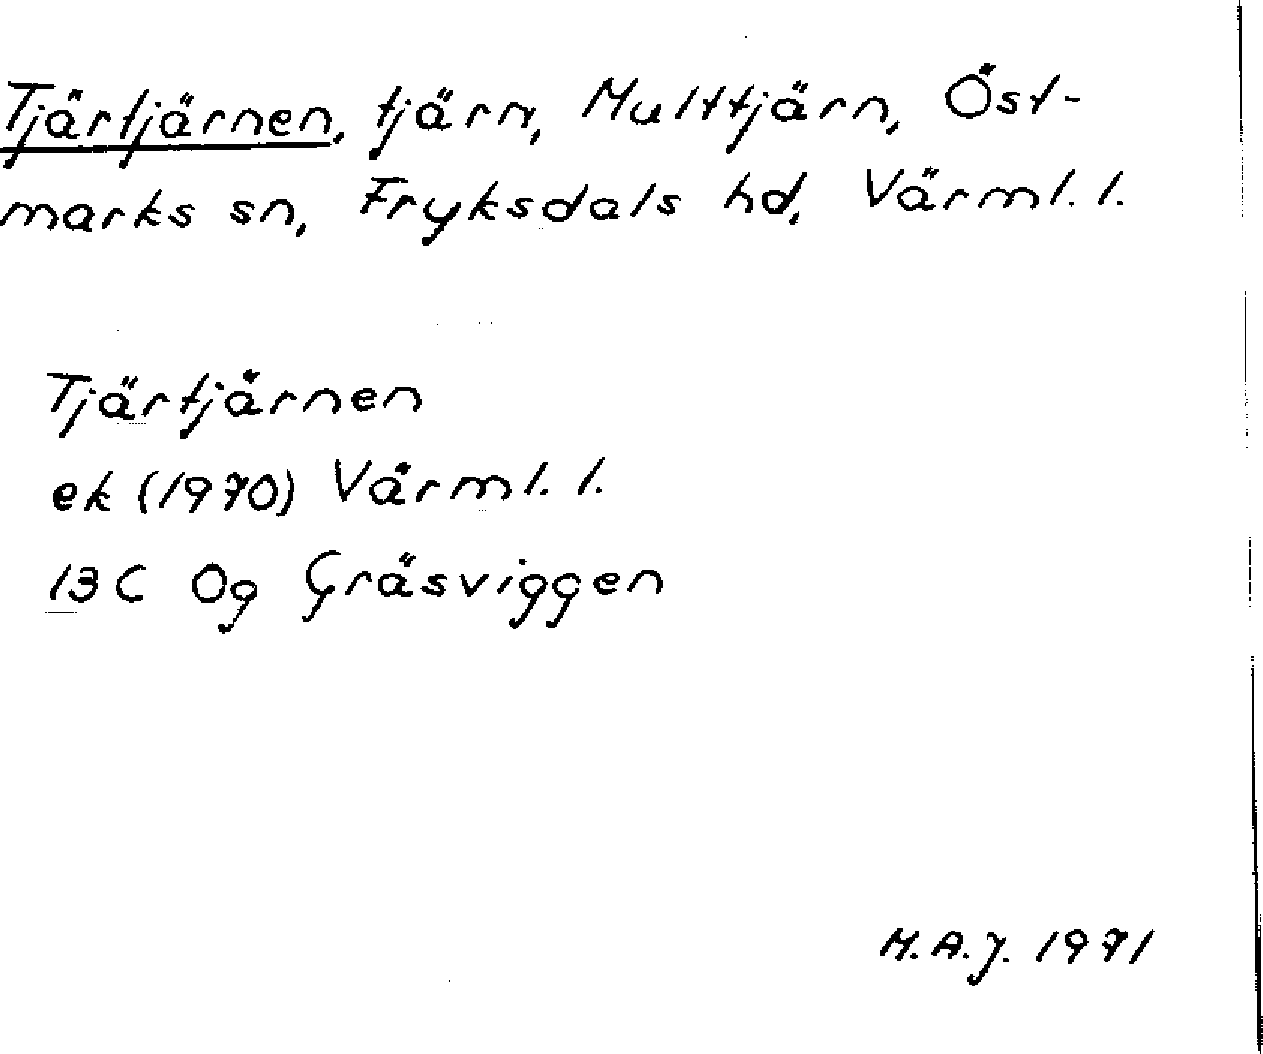 Tjärtjärnen, tjärn, Multtjärn, Öst-
marks sn, Fryksdals hd, Värml. l.
Tjärtjärnen
ek (1970) Värml. l.
13C 0g Gräsviggen
M.A.J. 1971